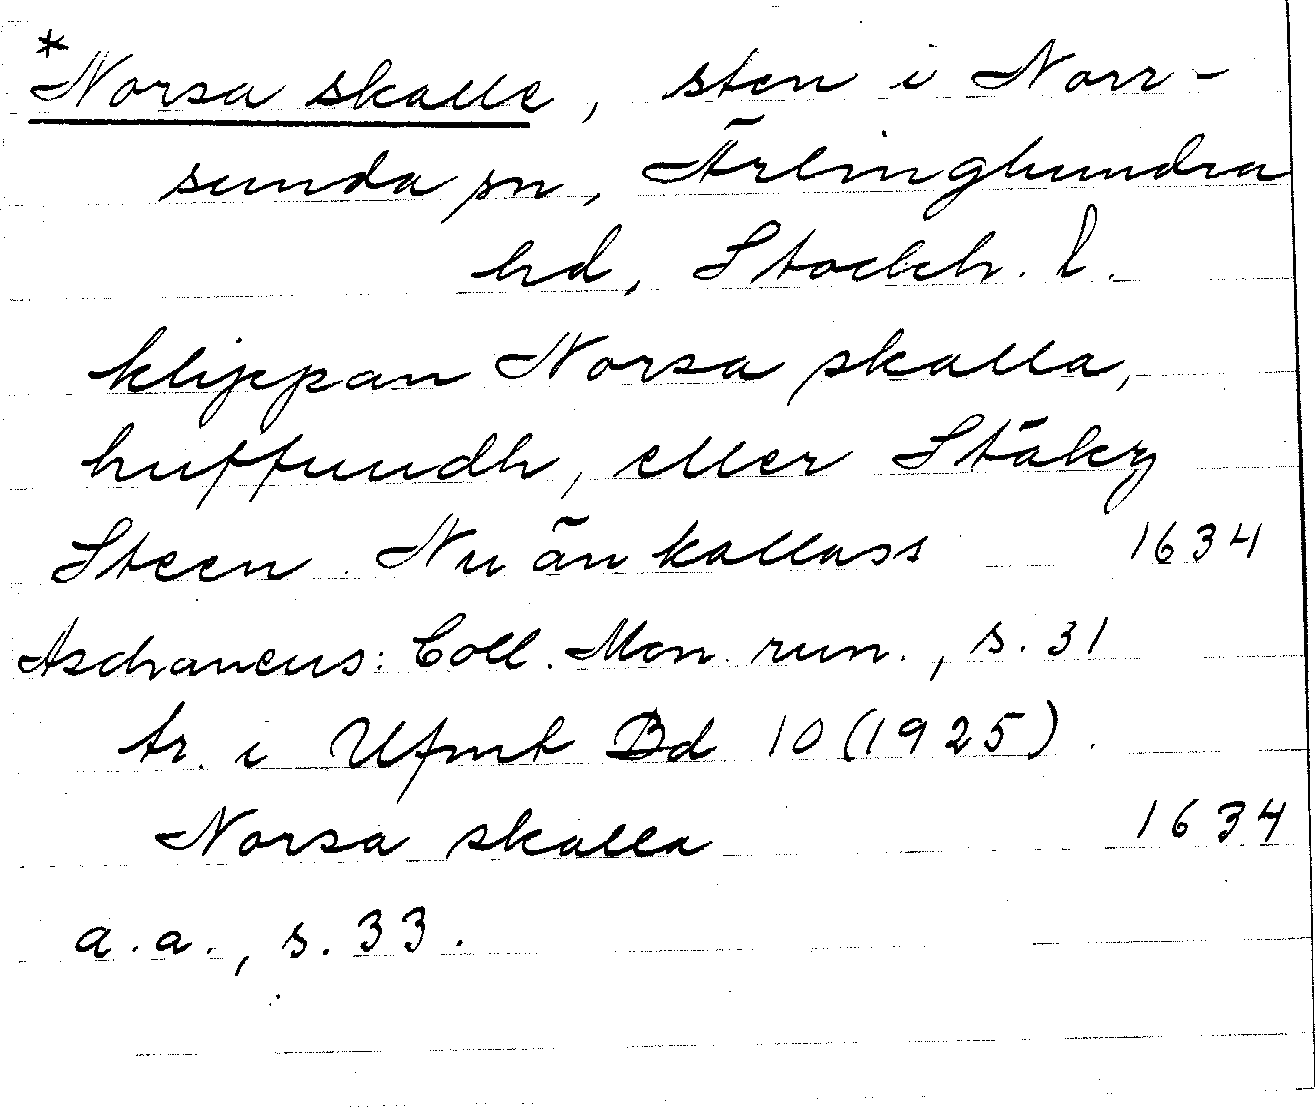 *Norsa skalle, sten i Norr-
sunda sn, Ärlinghundra
hd, Stockh. l.
klippan Norsa skalla,
huffuudh, eller Stäkz
Steen Nu än kallass 1634
Aschaneus: Coll. Mon. run., s. 31
tr. i Ufmt Bd 10 (1925).
Norsa skalla 1634
a.a., s. 33.